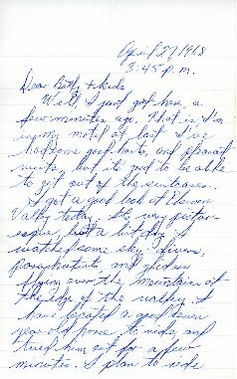 April 27 1968
8:45 p.m.
Dear Betty & kids
Well, I just got here, a
few minutes ago. That is I'm
in my motel at last. I've
had some good hosts, and
but it's good to be able
to get out of the suitcases.
I got a good look at
Valley today. It's very pictur-
esque, but a bit dry. I
watched some sky-divers,
parachutists and gliders
flying over the mountains at
the edge of the valley. I
have located a good seven
year old horse to ride, and
tried him out for a few
minutes. I plan to ride